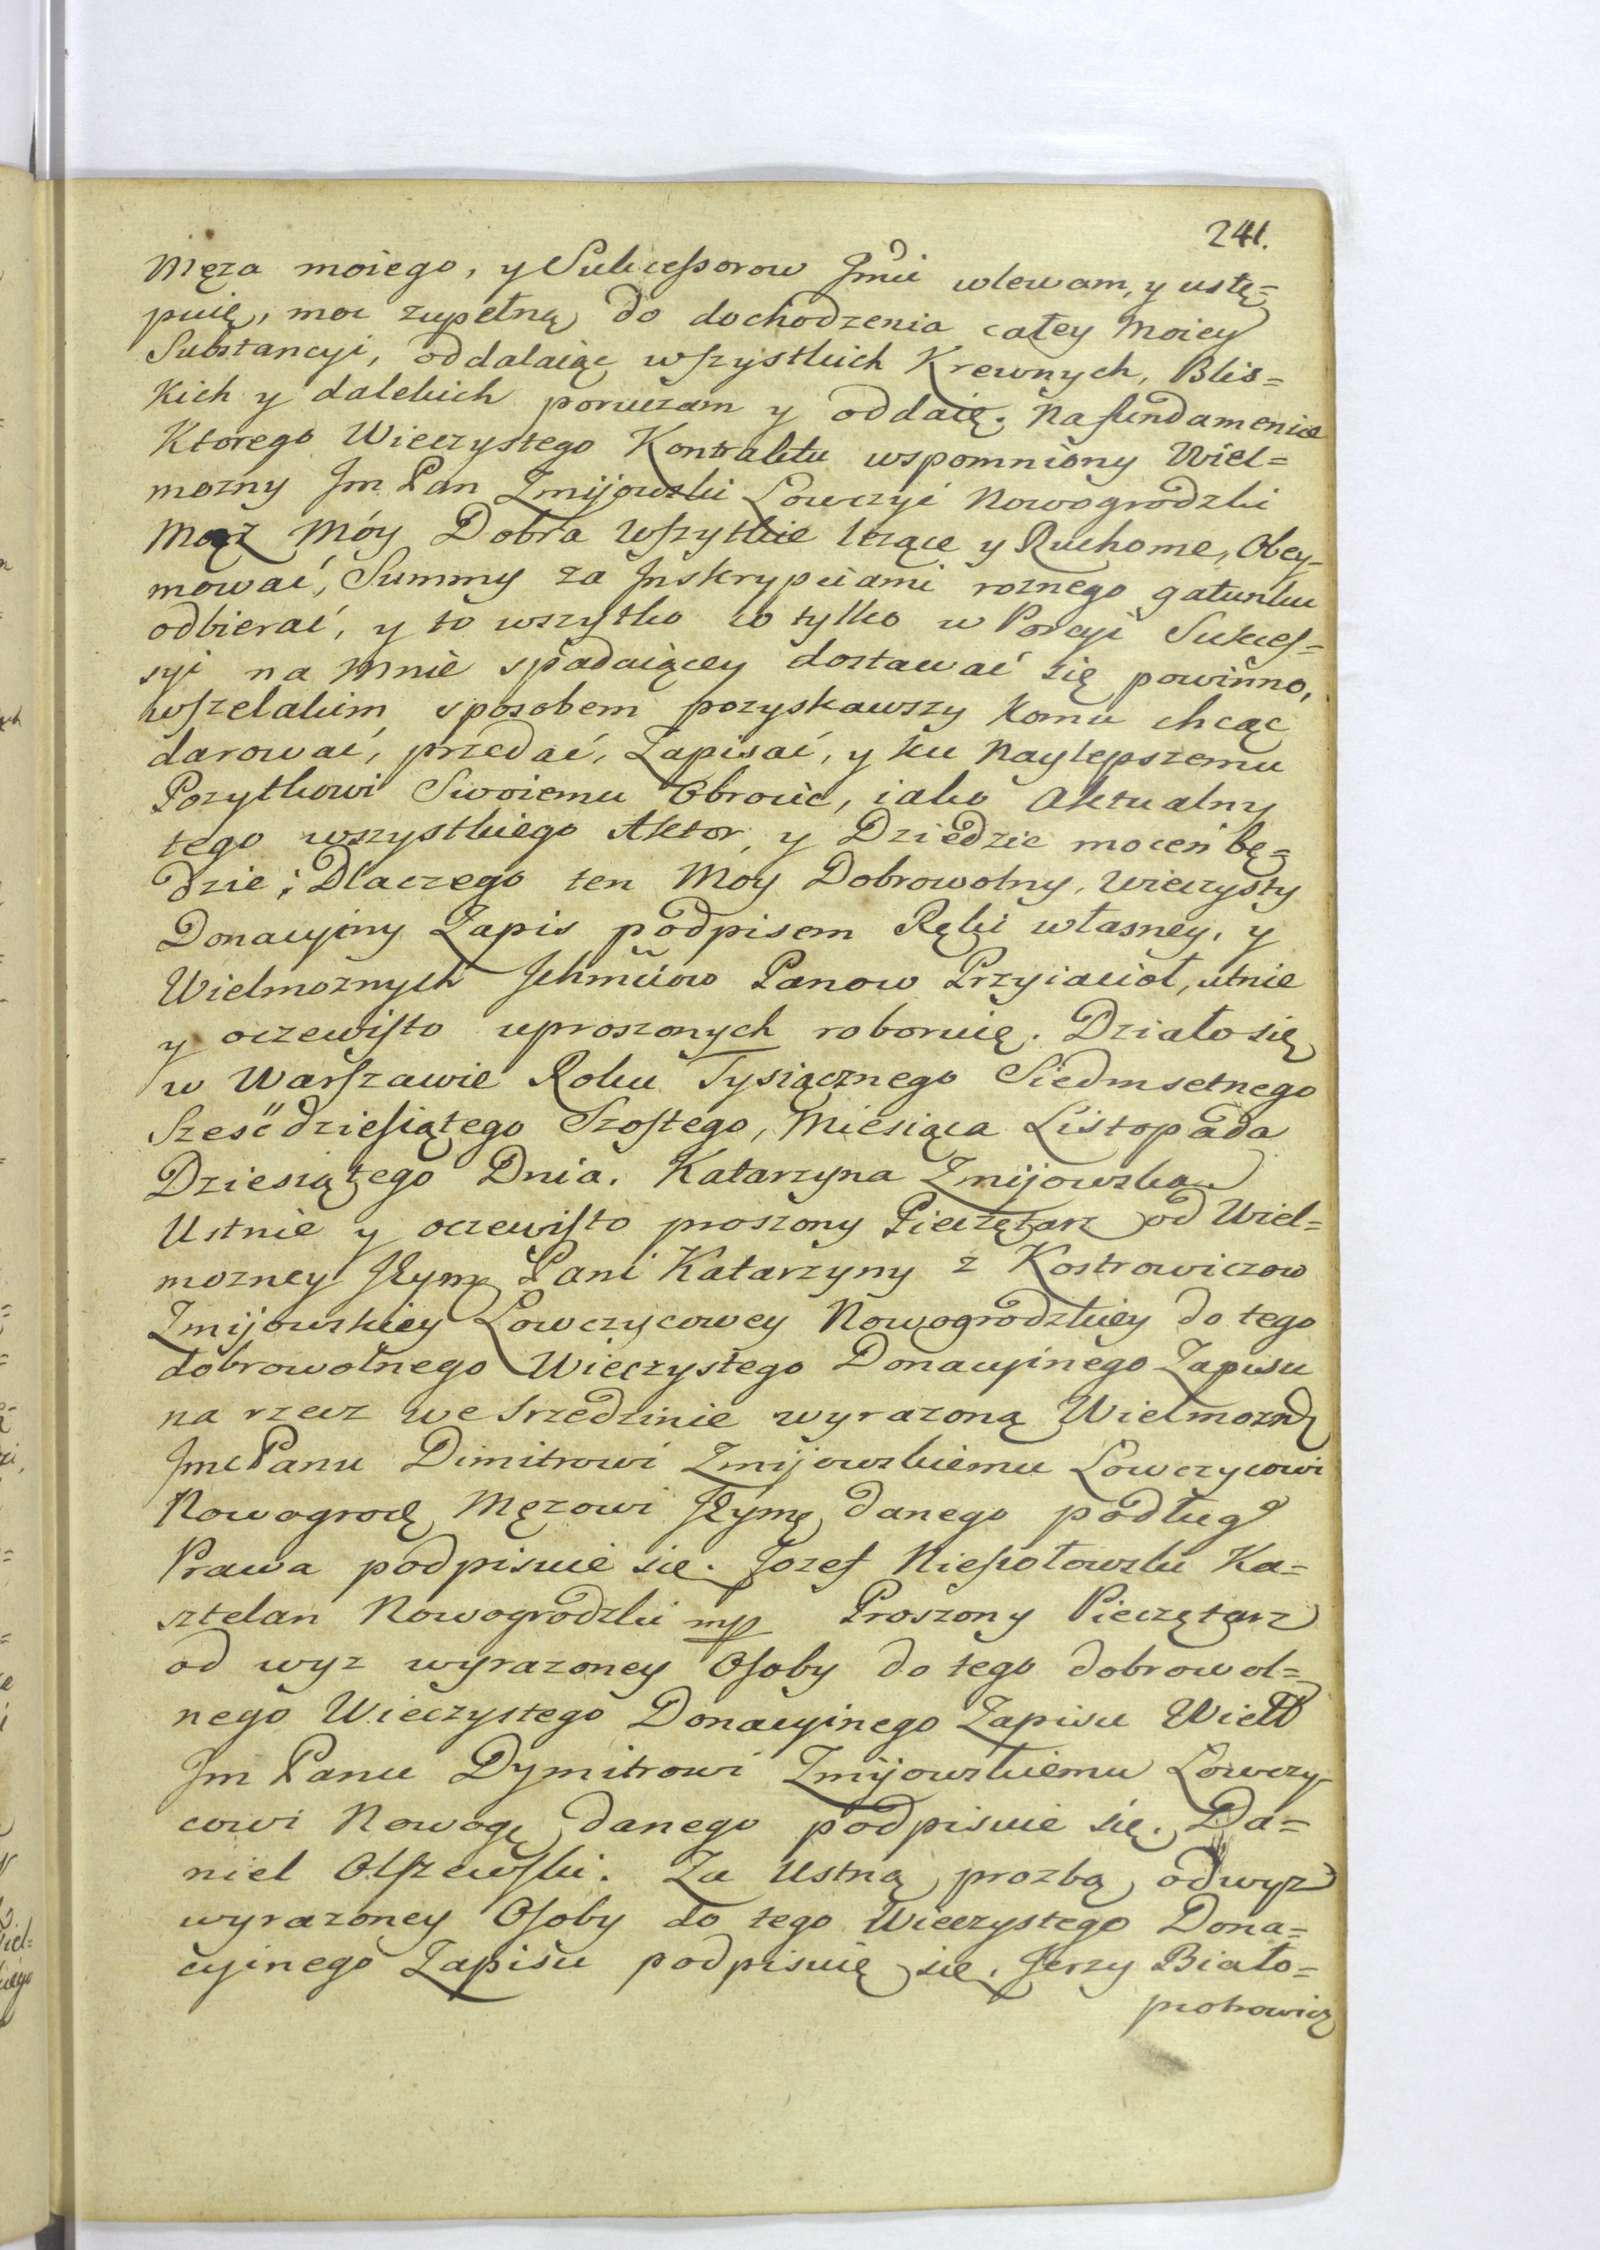 241.
Męza moiego, y Sukcessorow Jmci wlewam, y ustę=
puię, moc zupełną do dochodzenia całey Moiey
Substancyi, oddalaiąc wszystkich Krewnych, Blis=
Kich y dalekich poruczam y oddaię. Na fundamencie
Ktorego Wieczystego Kontraktu wspomniony Wiel=
mozny Jm Pan Zmijowski Łowczyć Nowogrodzki
Mąż Móy Dobra Wszytkie lezące y Ruchome, Obey=
mować, Summy za Jnskrypciami roznego gatunku
odbierać, y to wszytko co tylko w Porcyi Sukces=
syi na Mnie spadaiącey dostawać się powinno,
wszelakim sposobem pozyskawszy komu chcąc
darować, przedać, Zapisać, y ku Naylepszemu
Pozytkowi Swoiemu Obrocic, iako Aktualny
tego wszystkiego Aktor, y Dziedzic mocen bę=
dzie; Dlaczego ten Moy Dobrowolny, Wieczysty
Donacyiny Zapis podpisem Ręki własney, y
Wielmoznych Jchmciow Panow Przyiacioł, utnie
y oczewisto uproszonych roboruię. Działo się
w Warszawie Roku Tysiącznego Siedmsetnego
Sześćdziesiątego Szostego, Miesiąca Listopada
Dziesiątego Dnia. Katarzyna Zmijowska
Ustnie y oczewisto proszony Pieczętarz od Wiel=
mozney JEymę Pani Katarzyny z Kostrowiczow
Zmijowskiey Łowczycowey Nowogrodzkiey do tego
dobrowolnego Wieczystego Donacyinego Zapisu
na rzecz we srzedzinie wyrazoną Wielmozną
Jmć Panu Dimitrowi Zmijowskiemu Łowczycowi
Nowogrodę Męzowi JEymę danego podług
Prawa podpisuie sie. Jozef Niesiołowski Ka=
sztelan Nowogrodzki mp Proszony Pieczętarz
od wyz wyrazoney Osoby do tego dobrowol=
nego Wieczystego Donacyinego Zapisu Wiel
Jm Panu Dymitrowi Zmijowskiemu Łowczy
cowi Nowogę danego podpisuie się. Da=
niel Olszewski. Za Ustną prozbą od wyz
wyrazoney Osoby do tego Wieczystego Dona=
cyinego Zapisu podpisuię się. Jerzy Biało=
piotrowicz